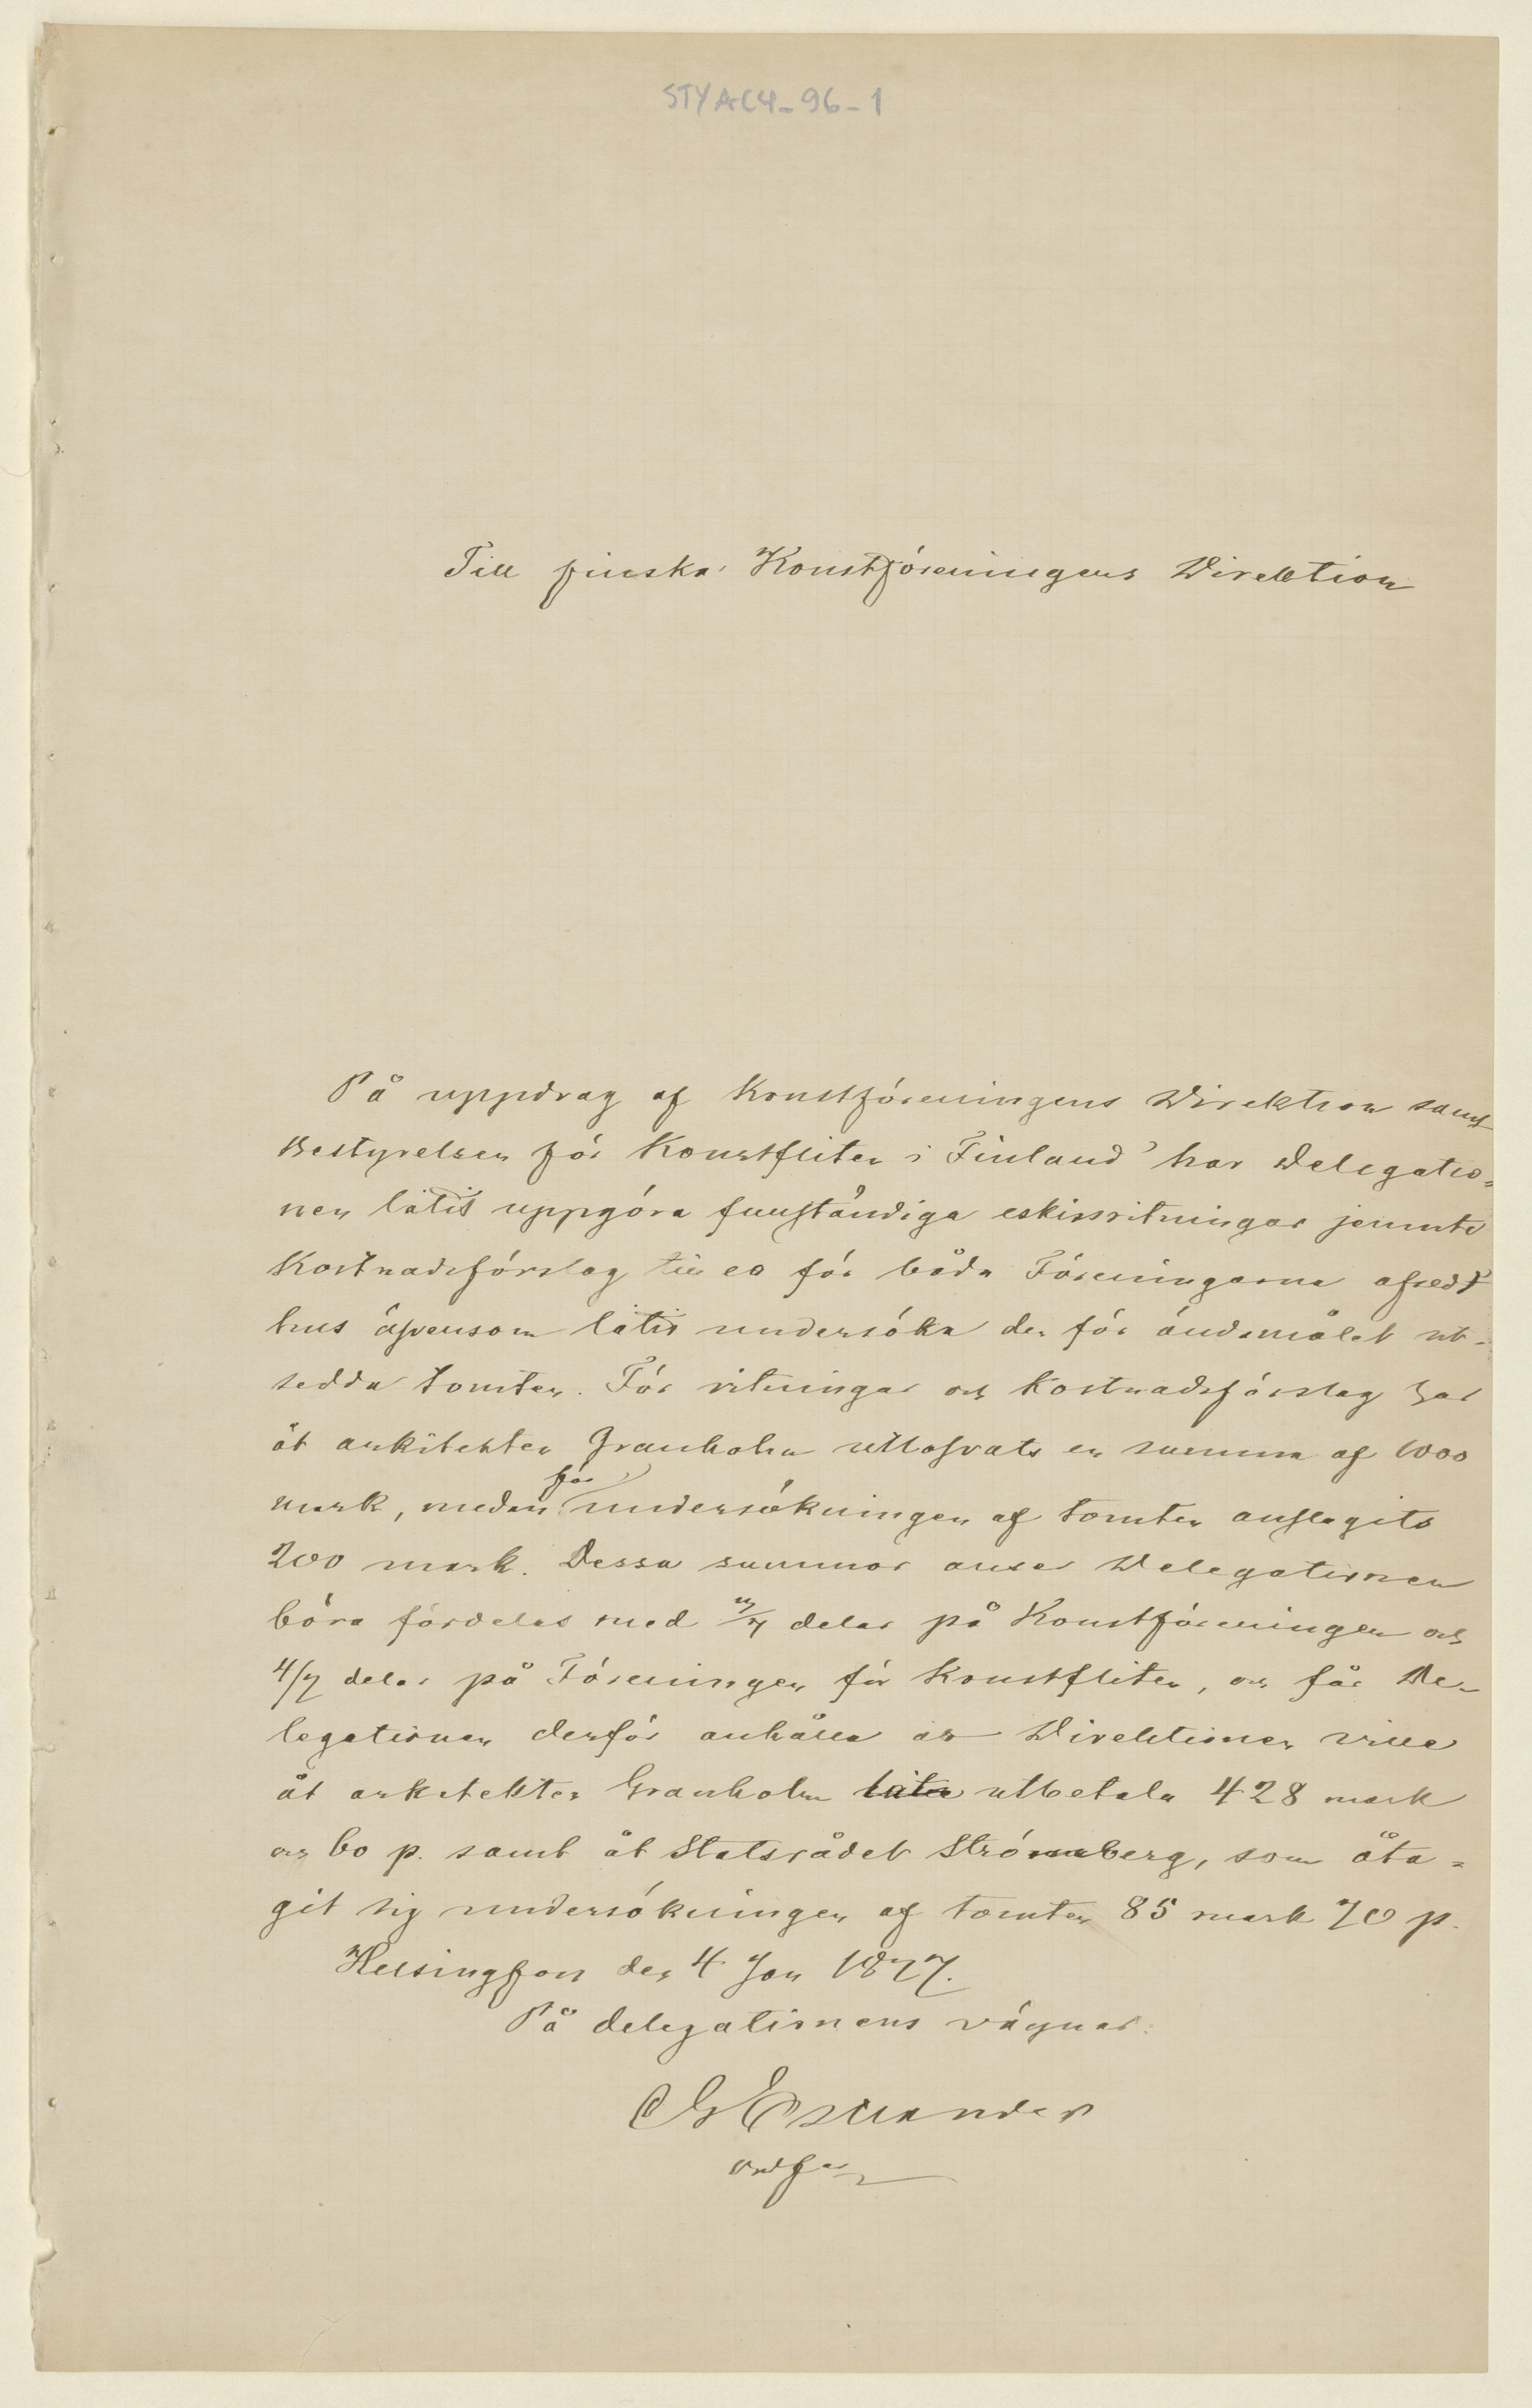 STYAC4-96-1
Till finska Konstföreningens Direktion
På uppdrag af Konstföreningens Direktion samt
Bestyrelsen för Konstfliten i Finland har Delegatio-
nen låtit uppgöra fullständiga eskissritningar jemnte
Kostnadsförslag till ett för båda Föreningarna afsedt
hus äfvensom låtit undersöka den för ändamålet ut-
sedda tomten. För ritningar och Kostnadsförslag har
åt arkitekten Granholm utlofvats en summa af 1000
mark, medan för undersökningen af tomten anslagits
200 mark. Dessa summor anser Delegationen
böra fördelas med 3/7 delar på Konstföreningen och
4/7 delar på Föreningen för Konstfliten, och får De-
legationen derför anhålla att Direktionen ville
åt arkitekten Granholm låta utbetala 428 mark
och 60 p. samt åt Statsrådet Strömberg, som åta-
git sig undersökningen af tomten 85 mark 70 p.
Helsingfors den 4 Jan 1877.
På delegationens vägnar:
CGEstlander
ordf